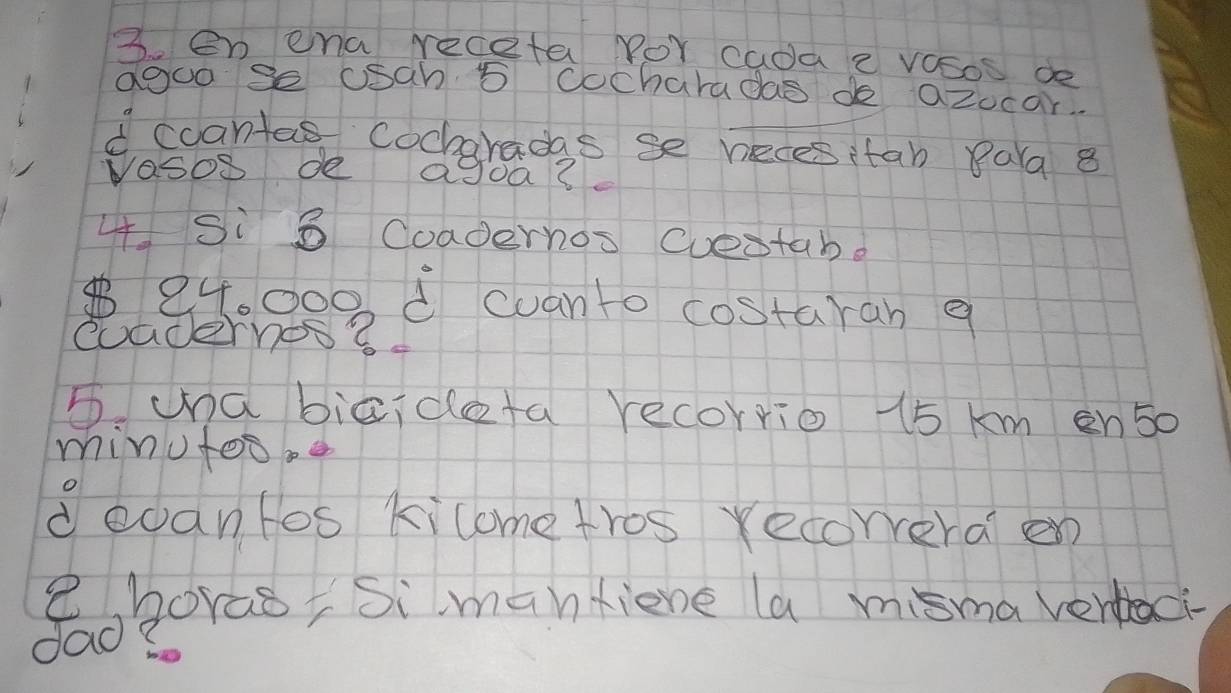 3. en ena receta por cada 2 vasos de
agua se usan 5 cucharadas de azucar..
¿ cuantas cochgradas se necesitan para 8
vasos de agua?.
4. Si 6 cuadernos cuestan.
$ 24.000 ¿ cuanto costaran 9
cuadernos?.
5. una bicicleta recorrio 15 km en 50
minutos..
¿ cuantos kilometros recorrerá en
2 horas, Si mantiene la misma
dad?.